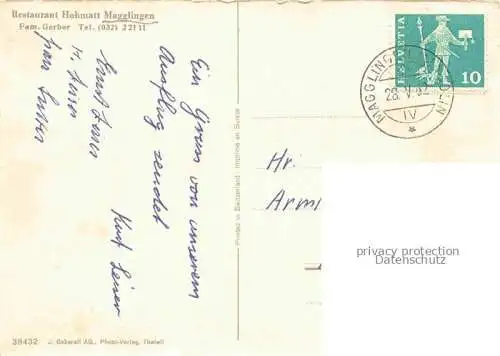 Restaurant Hohmatt Magglingen
Fam. Gerber Tel. (032) 2 21 11
Ein Gruss von unserem
Ausflug sendet
Kurt
HELVETIA
10
MAGGLINGEN
28. V.
IV
Hr.
Armi
privacy protection
Datenschutz
Printed in Switzerland - Imprimé en Suisse
38432 J. Gaberell AG., Photo-Verlag, Thalwil